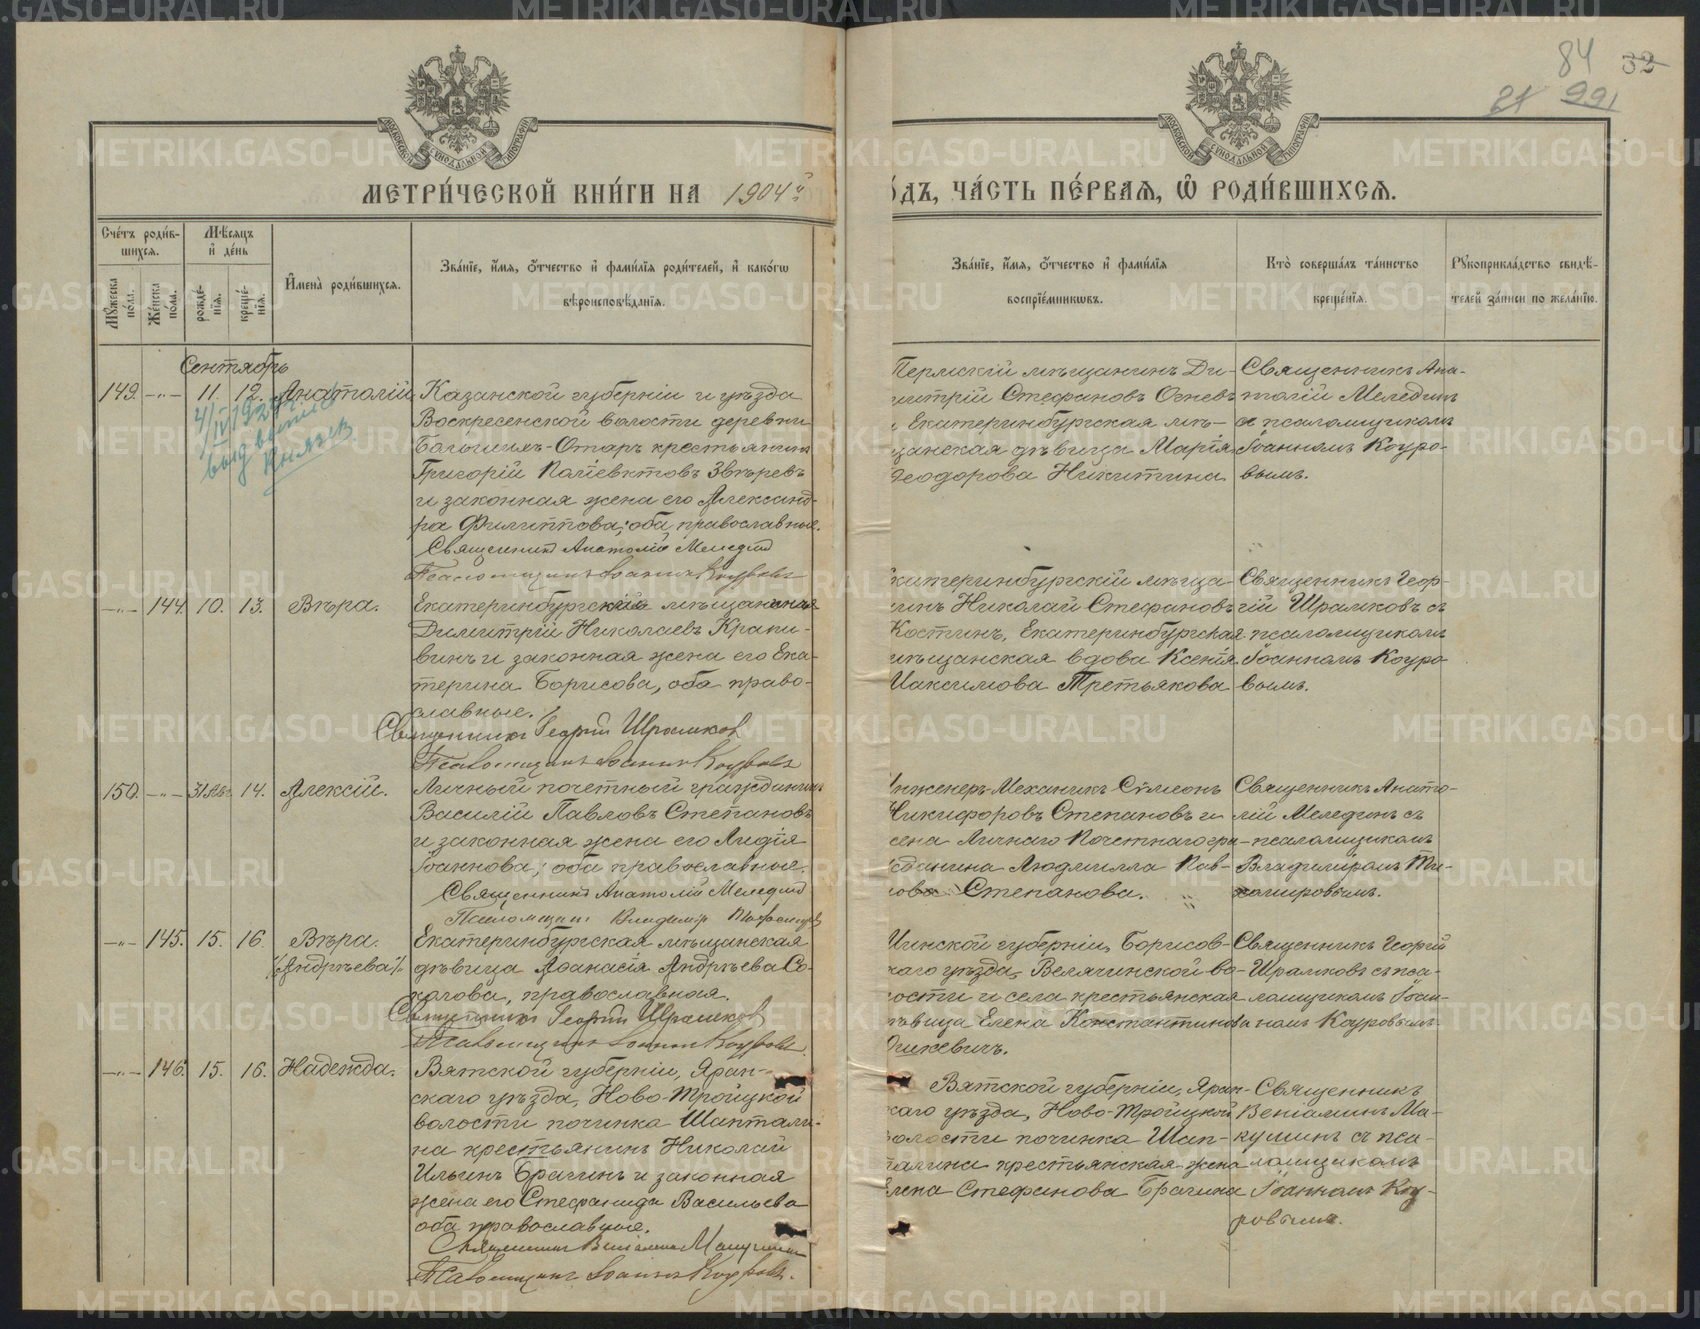 84 32
21 991
МЕТРИ́ЧЕСКОЙ КНИ́ГИ НА 1904й
О́ДЪ, ЧА́СТЬ ПЕ́РВАЯ, Ѿ РОДИ́ВШИХСЯ.
Сче́тъ роди́в-
шихся.
Мꙋ́жеска по́ла.
Же́нска по́ла.
Мѣ́сяцъ
и҆ де́нь
рожде́-
нїя.
креще́-
нїя.
И҆мена̀ роди́вшихся.
Зва́нїе, и҆́мя, ѻ҆́тчество и҆ фами́лїя роди́телей, и҆ како́гѡ
вѣроисповѣ́данїя.
Зва́нїе, и҆́мя, ѻ҆́тчество и҆ фами́лїя
воспрїе́мникѡвъ.
Кто̀ соверша́лъ та́инство
креще́нїя.
Рꙋкоприкла́дство свидѣ́-
телей за́писи по жела́нїю.
Сентябрь
149. -"- 11. 12. Анатолій
Казанской губерніи и уѣзда
Воскресенской волости деревни
Большихъ-Отаръ крестьянинъ
Григорій Поліевктовъ Звѣревъ
и законная жена его Александ-
ра Филиппова; оба православные.
Священникъ Анатолій Меледин
Псаломщикъ Іоаннъ Коуровъ
Пермскій мѣщанинъ Ди-
митрій Стефановъ Огневъ
и Екатеринбургская мѣ-
щанская дѣвица Марія
Ѳеодорова Никитина.
Священникъ Ана-
толій Мелединъ
съ псаломщикомъ
Іоанномъ Коуро-
вымъ.
-"- 144. 10. 13. Вѣра.
Екатеринбургскій мѣщанинъ
Димитрій Николаевъ Крапи-
винъ и законная жена его Ека-
терина Борисова, оба право-
славные.
Священникъ Георгій Шрамков
Псаломщикъ Іоаннъ Коуровъ
Екатеринбургскій мѣща-
нинъ Николай Стефановъ
Костинъ, Екатеринбургская
мѣщанская вдова Ксенія
Максимова Третьякова
Священникъ Геор-
гій Шрамковъ съ
псаломщикомъ
Іоанномъ Коуро-
вымъ.
150. -"- 31 Авг. 14. Алексій.
Личный почетный гражданинъ
Василій Павловъ Степановъ
и законная жена его Лидія
Іоаннова; оба православные.
Священникъ Анатолій Меледин
Псаломщикъ Владимір Тихомиров
Инженеръ-Механикъ Сѵмеонъ
Никифоровъ Степановъ и
жена Личнаго Почетнаго гра-
жданина Людмилла Пав-
лова Степанова.
Священникъ Анато-
лій Мелединъ съ
псаломщикомъ
Владиміромъ Ти-
хомировымъ.
-"- 145. 15. 16. Вѣра.
(Андрѣева).
Екатеринбургская мѣщанская
дѣвица Аѳанасія Андрѣева Со-
колова, православная.
Священникъ Георгій Шрамков
Псаломщикъ Іоаннъ Коуровъ
Минской губерніи, Борисов-
скаго уѣзда, Велячинской во-
лости и села крестьянская
дѣвица Елена Константинова
Священникъ Георгій
Шрамковъ съ пса-
ломщикомъ Іоан-
номъ Коуровымъ.
-"- 146. 15. 16. Надежда.
Вятской губерніи, Яран-
скаго уѣзда, Ново-Троицкой
волости починка Шапталы-
на крестьянинъ Николай
Ильинъ Брагинъ и законная
жена его Стефанида Васильева
оба православные.
Священникъ Веніаминъ Макушинъ
Псаломщикъ Іоаннъ Коуровъ.
Вятской губерніи, Яран-
скаго уѣзда, Ново-Троицкой
волости починка Шап-
талина крестьянская жена
Елена Стефанова Брагина
Священникъ
Веніаминъ Ма-
кушинъ съ пса-
ломщикомъ
Іоанномъ Коу-
ровымъ.
METRIKI.GASO-URAL.RU